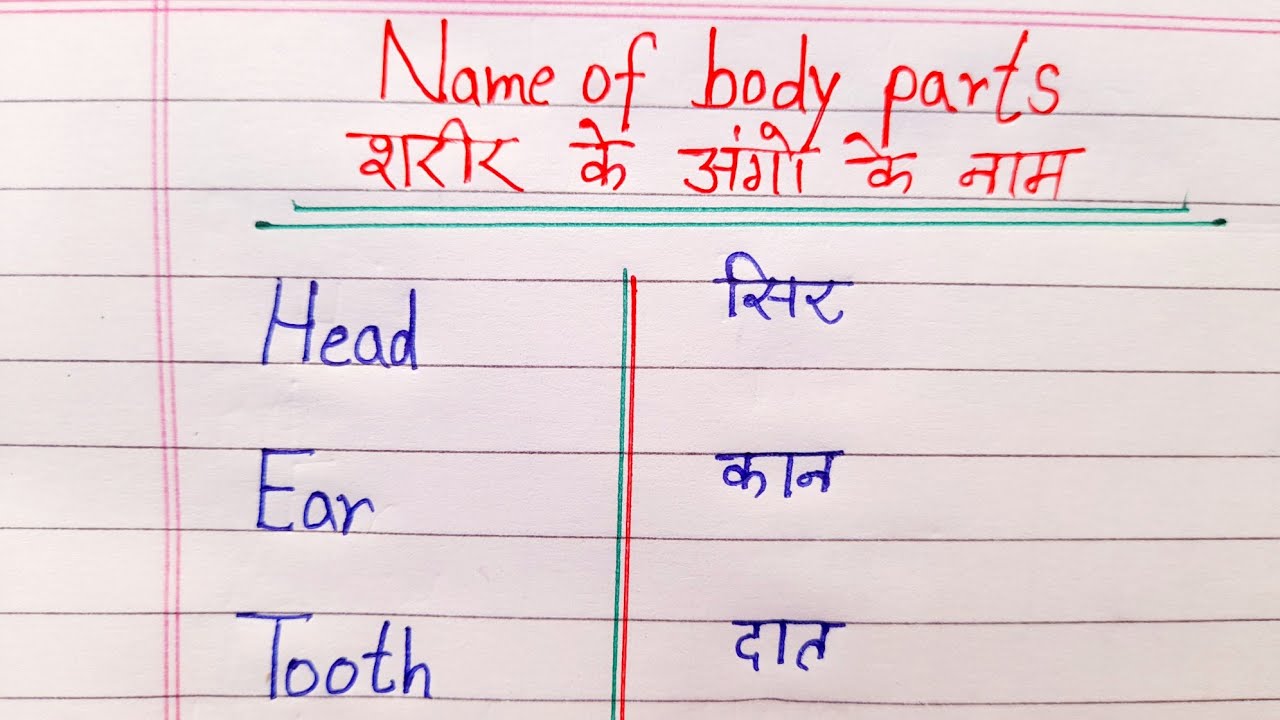 Name of body parts
शरीर के अंगो के नाम
Head सिर
Ear कान
Tooth दात